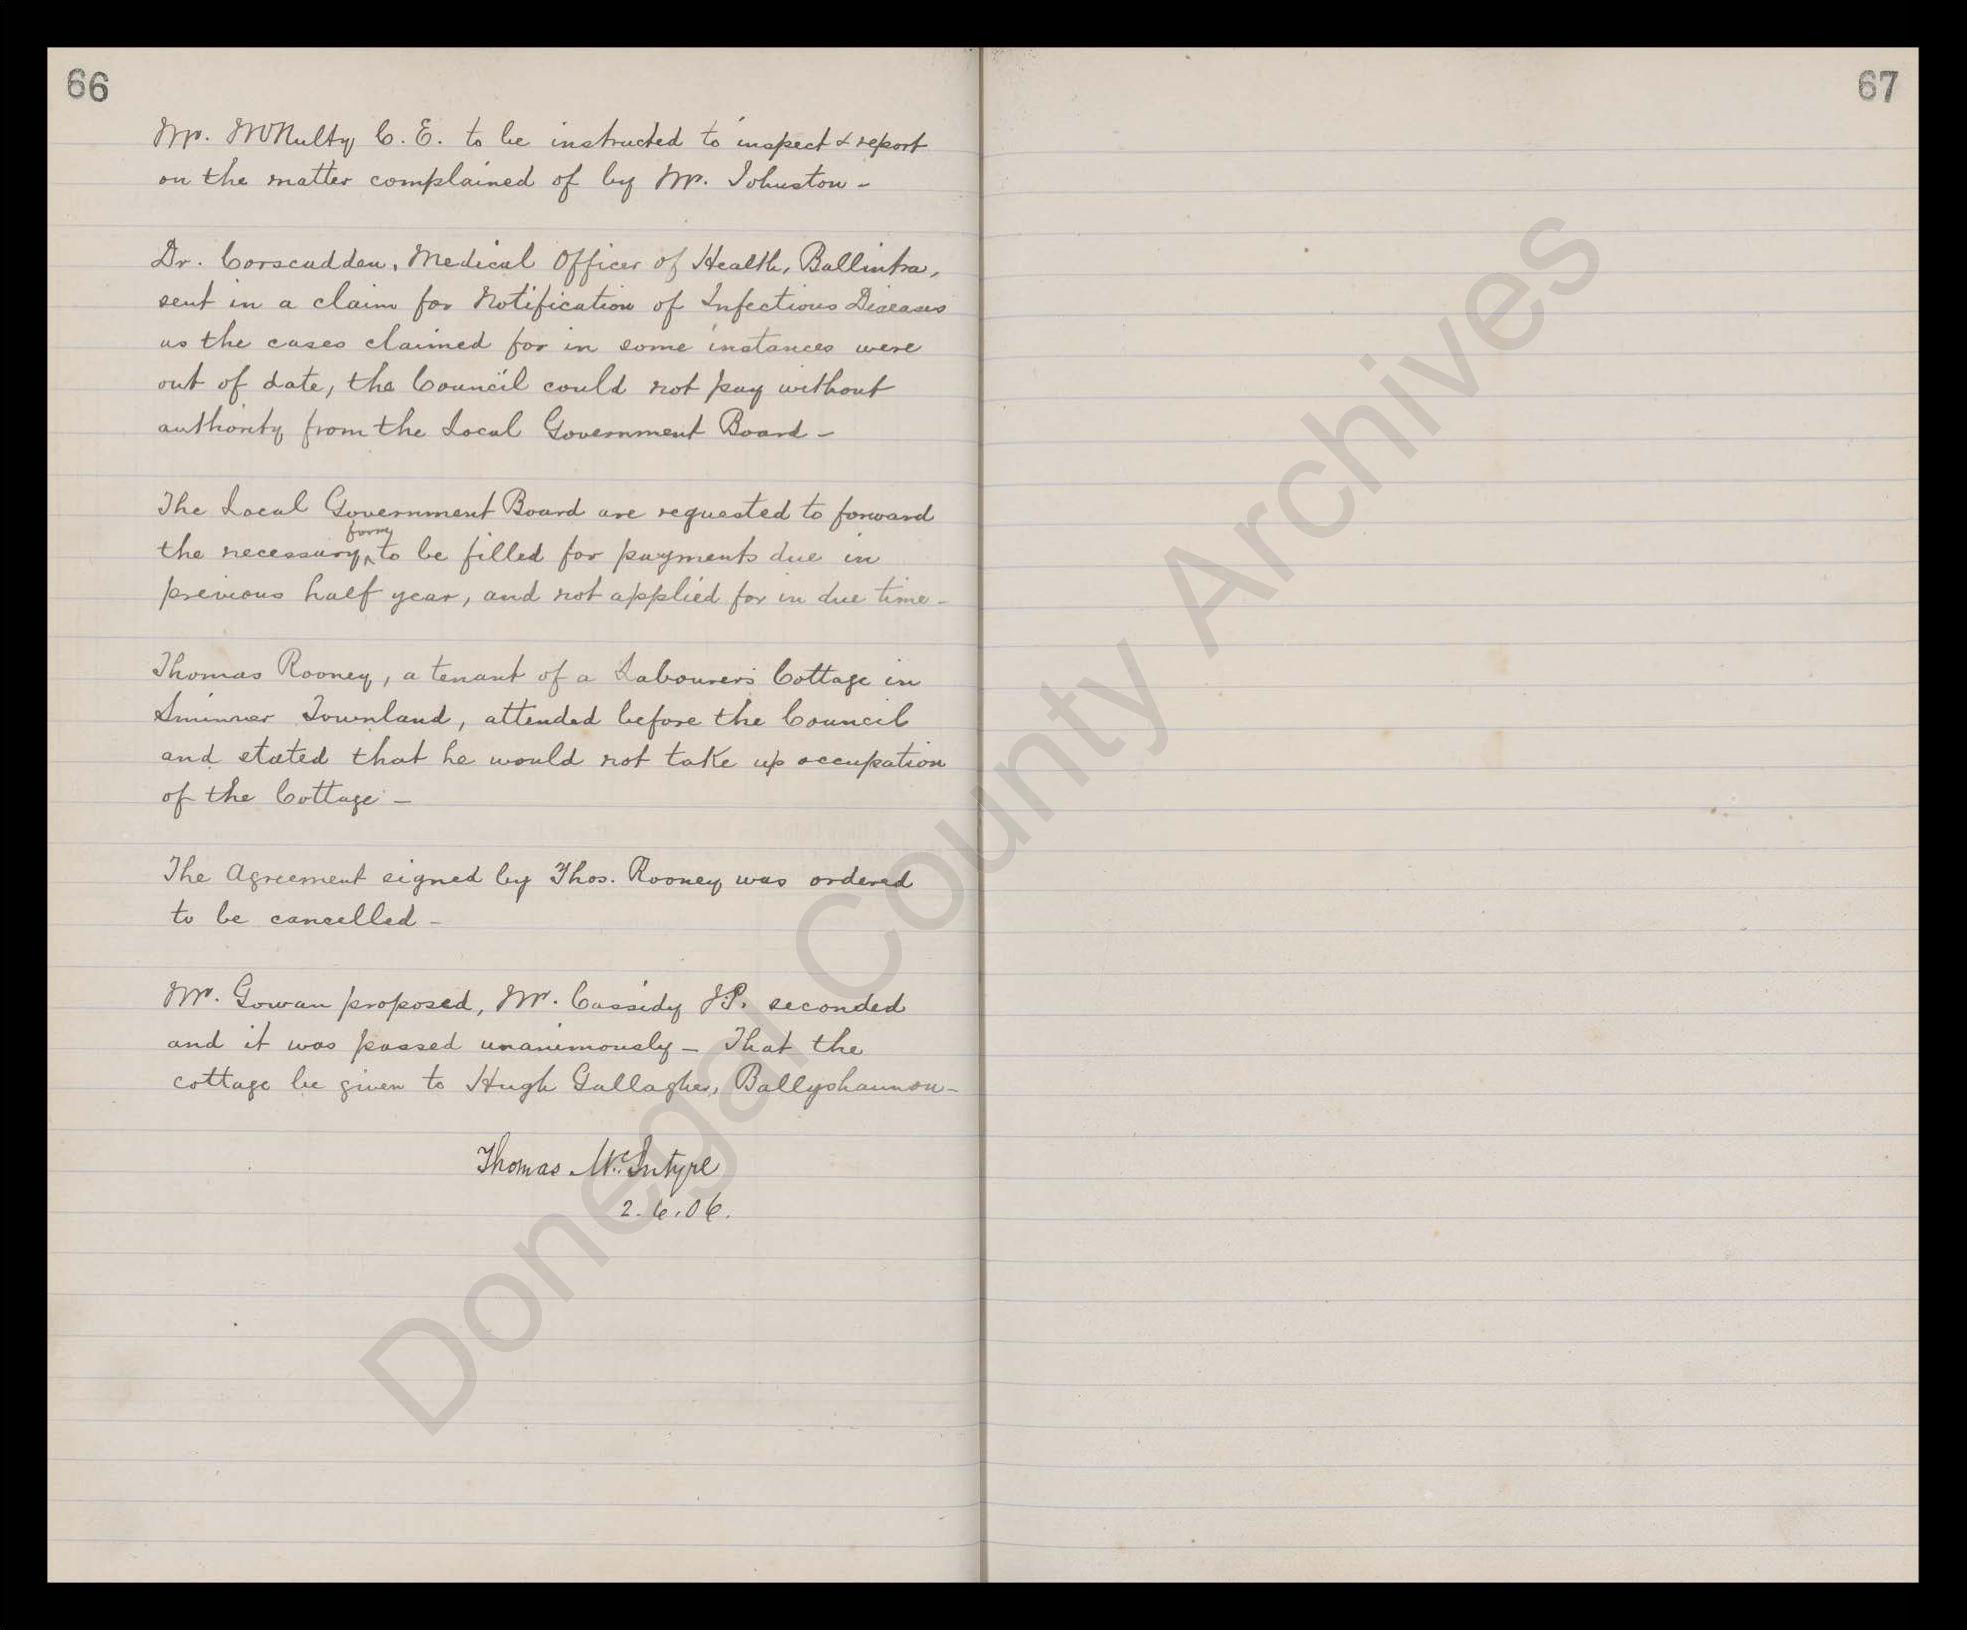 66
Mr. McNulty C. E. to be instructed to inspect & report
on the matter complained of by Mr. Johnston -
Dr. Corscadden, Medical Officer of Health, Ballintra,
sent in a claim for Notification of Infectious Diseases
as the cases claimed for in some instances were
out of date, the Council could not pay without
authority from the Local Government Board -
The Local Government Board are requested to forward
forms
the necessary ^ to be filled for payments due in
previous half year, and not applied for in due time -
Thomas Rooney, a tenant of a Labourers Cottage in
Townland, attended before the Council
and stated that he would not take up occupation
of the Cottage -
The Agreement signed by Thos. Rooney was ordered
to be cancelled -
Mr. Gowan proposed, Mr. Cassidy J.P. seconded
and it was passed unanimously - That the
cottage be given to Hugh Gallagher, Ballyshannon -
Thomas McIntyre
2.6.06.
67
Donegal County Archives